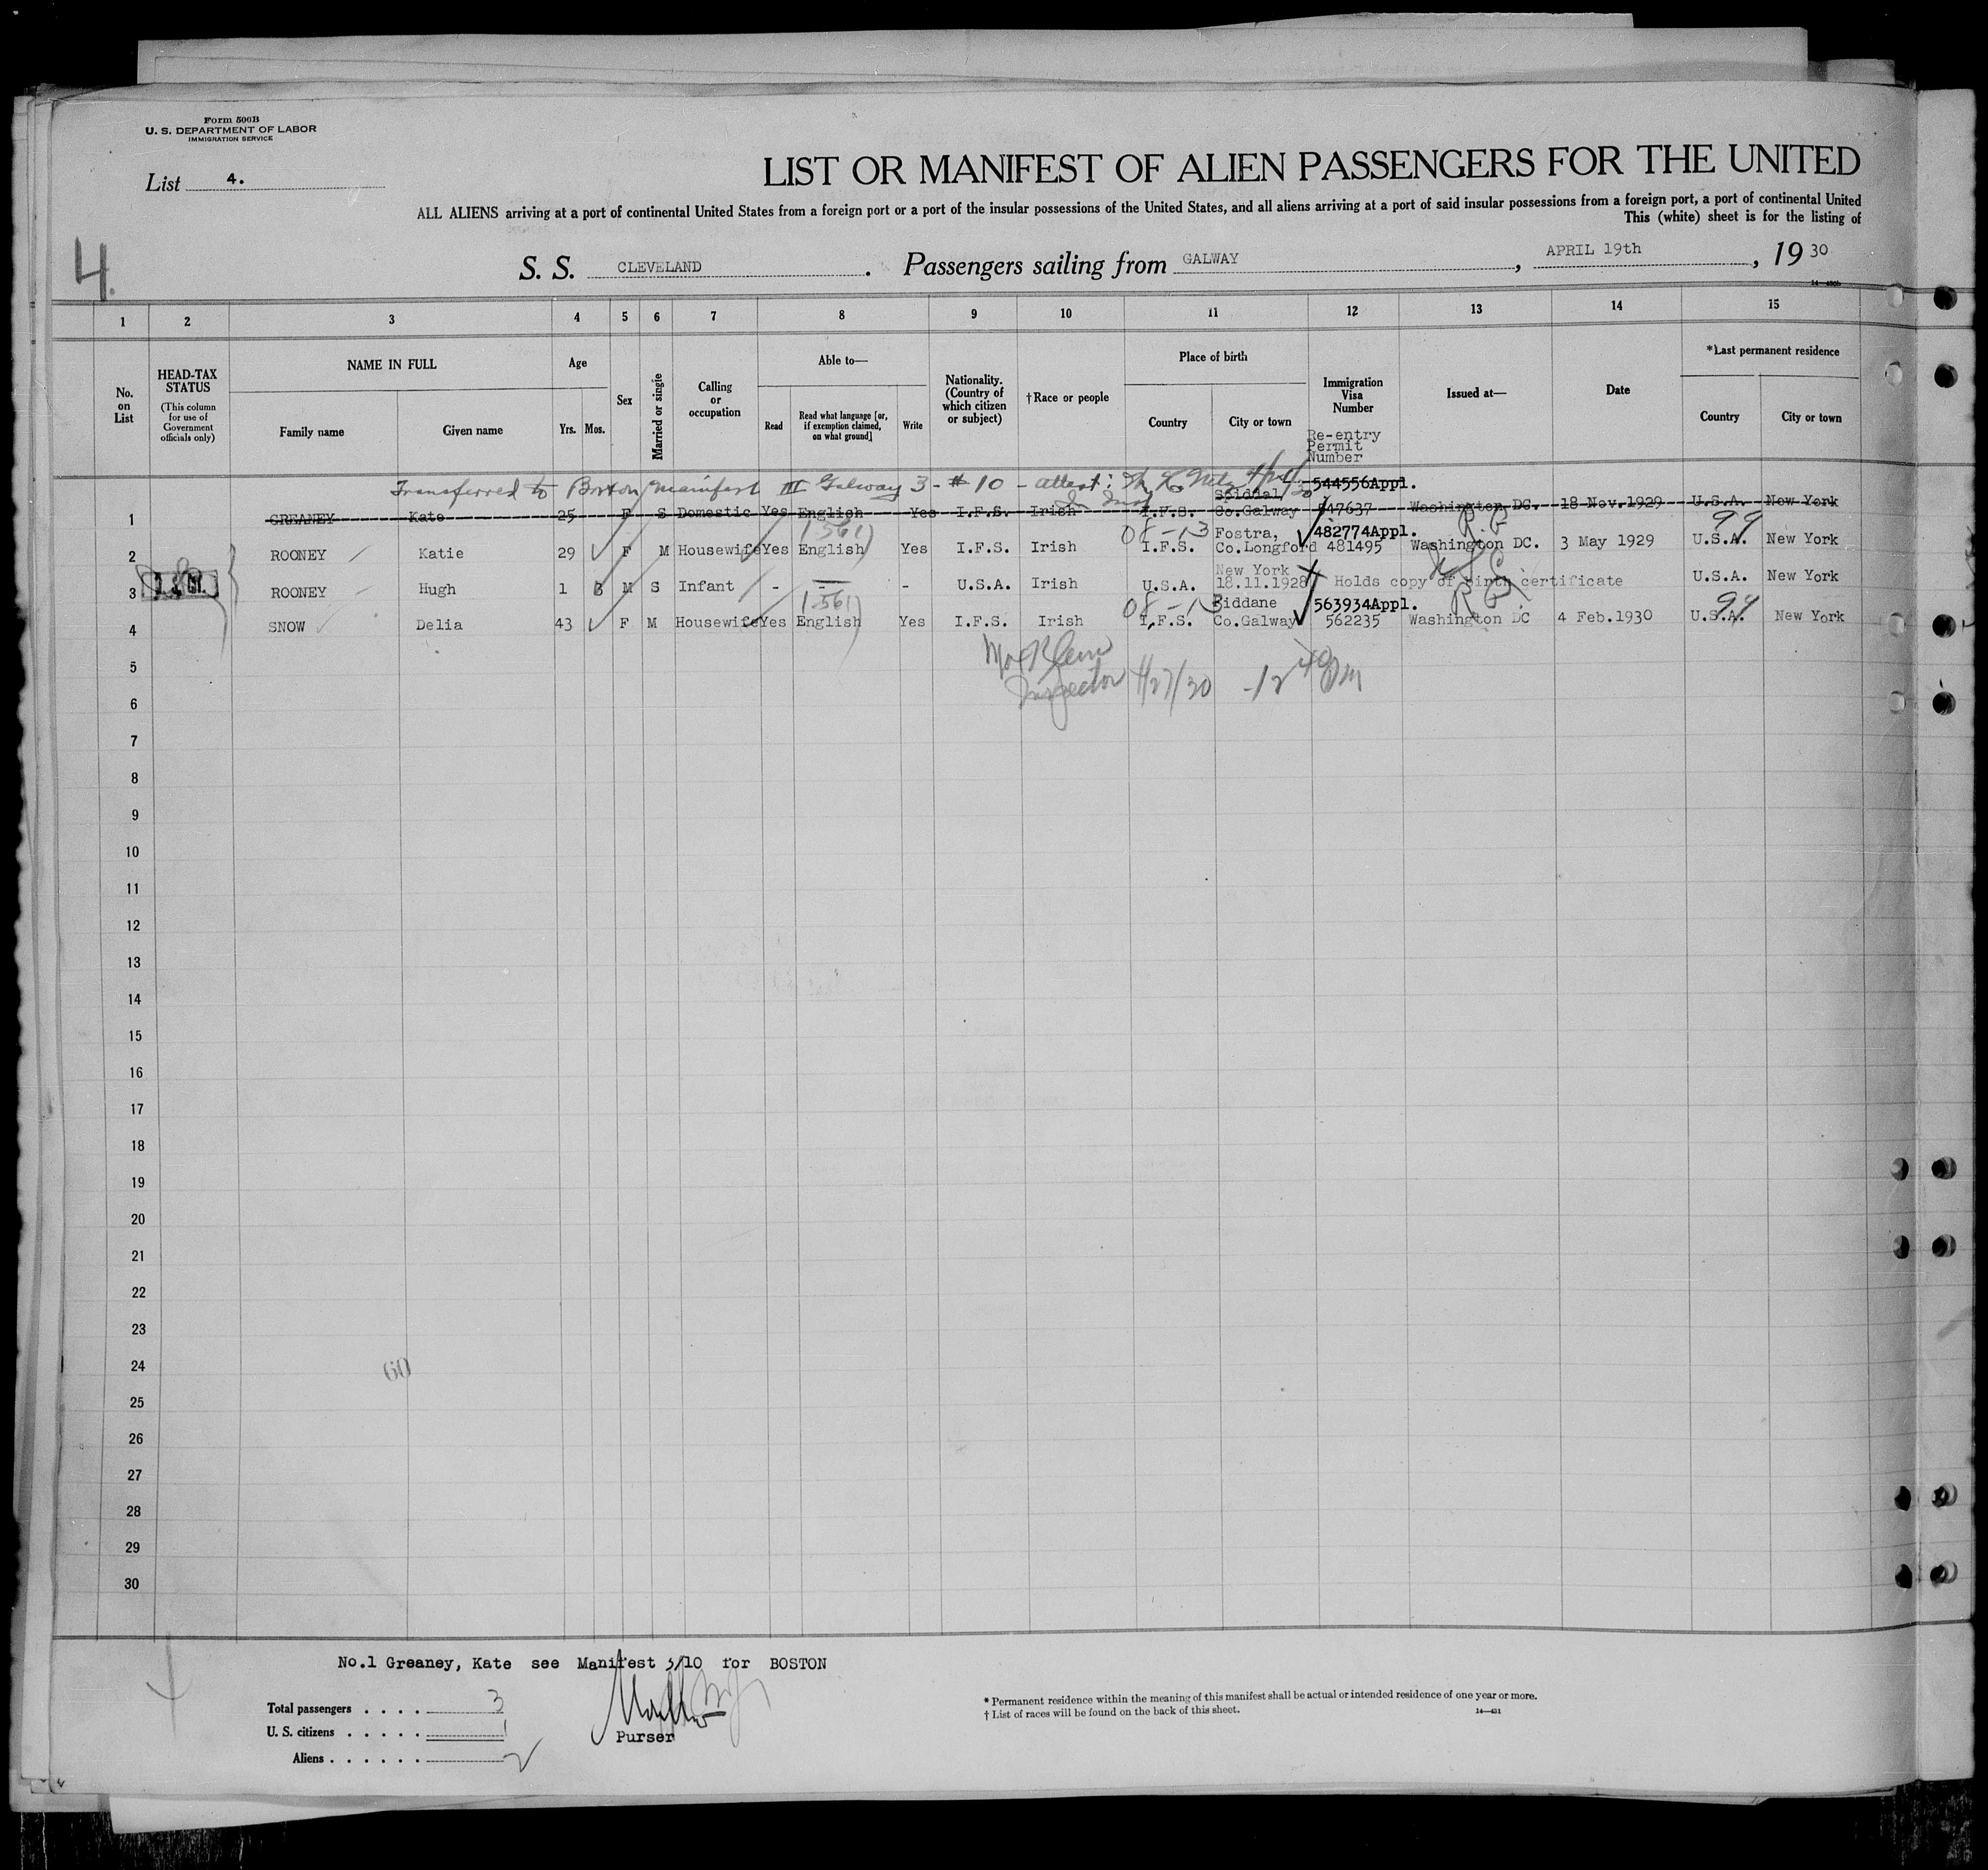 Form 500B
U. S. DEPARTMENT OF LABOR
IMMIGRATION SERVICE
List 4.
LIST OR MANIFEST OF ALIEN PASSENGERS FOR THE UNITED
ALL ALIENS arriving at a port of continental United States from a foreign port or a port of the insular possessions of the United States, and all aliens arriving at a port of said insular possessions from a foreign port, a port of continental United
This (white) sheet is for the listing of
4.
S. S. CLEVELAND. Passengers sailing from GALWAY, APRIL 19th, 1930
14—430b
1 2 3 4 5 6 7 8 9 10 11 12 13 14 15
No. on List
HEAD-TAX STATUS (This column for use of Government officials only)
NAME IN FULL
Family name Given name
Age
Yrs. Mos.
Sex
Married or single
Calling or occupation
Able to—
Read Read what language [or, if exemption claimed, on what ground] Write
Nationality. (Country of which citizen or subject)
†Race or people
Place of birth
Country City or town
Immigration Visa Number
Re-entry Permit Number
Issued at—
Date
*Last permanent residence
Country City or town
Transferred to Boston Manifest III Galway 3 - #10 - attest:
1 GREANEY Kate 25 F S Domestic Yes English Yes I.F.S. Irish I.F.S. Spiddal, Co.Galway 544556Appl. 547637 Washington DC. 18 Nov.1929 U.S.A. New York
1561 08-13 R.P. 99
2 ROONEY Katie 29 F M Housewife Yes English Yes I.F.S. Irish I.F.S. Fostra, Co.Longford 482774Appl. 481495 Washington DC. 3 May 1929 U.S.A. New York
3 ROONEY Hugh 1 M S Infant - - - U.S.A. Irish U.S.A. New York 18.11.1928 Holds copy of birth certificate U.S.A. New York
1561 08-13 99
4 SNOW Delia 43 F M Housewife Yes English Yes I.F.S. Irish I.F.S. Biddane Co.Galway 563934Appl. 562235 Washington DC 4 Feb.1930 U.S.A. New York
5
Inspector 4/27/30 -12 40 pm
6
7
8
9
10
11
12
13
14
15
16
17
18
19
20
21
22
23
24
60
25
26
27
28
29
30
No.1 Greaney, Kate see Manifest 3/10 for BOSTON
Total passengers . . . . 3
U. S. citizens . . . . . 1
Aliens . . . . . . 2
Purser
* Permanent residence within the meaning of this manifest shall be actual or intended residence of one year or more.
† List of races will be found on the back of this sheet.
14—431